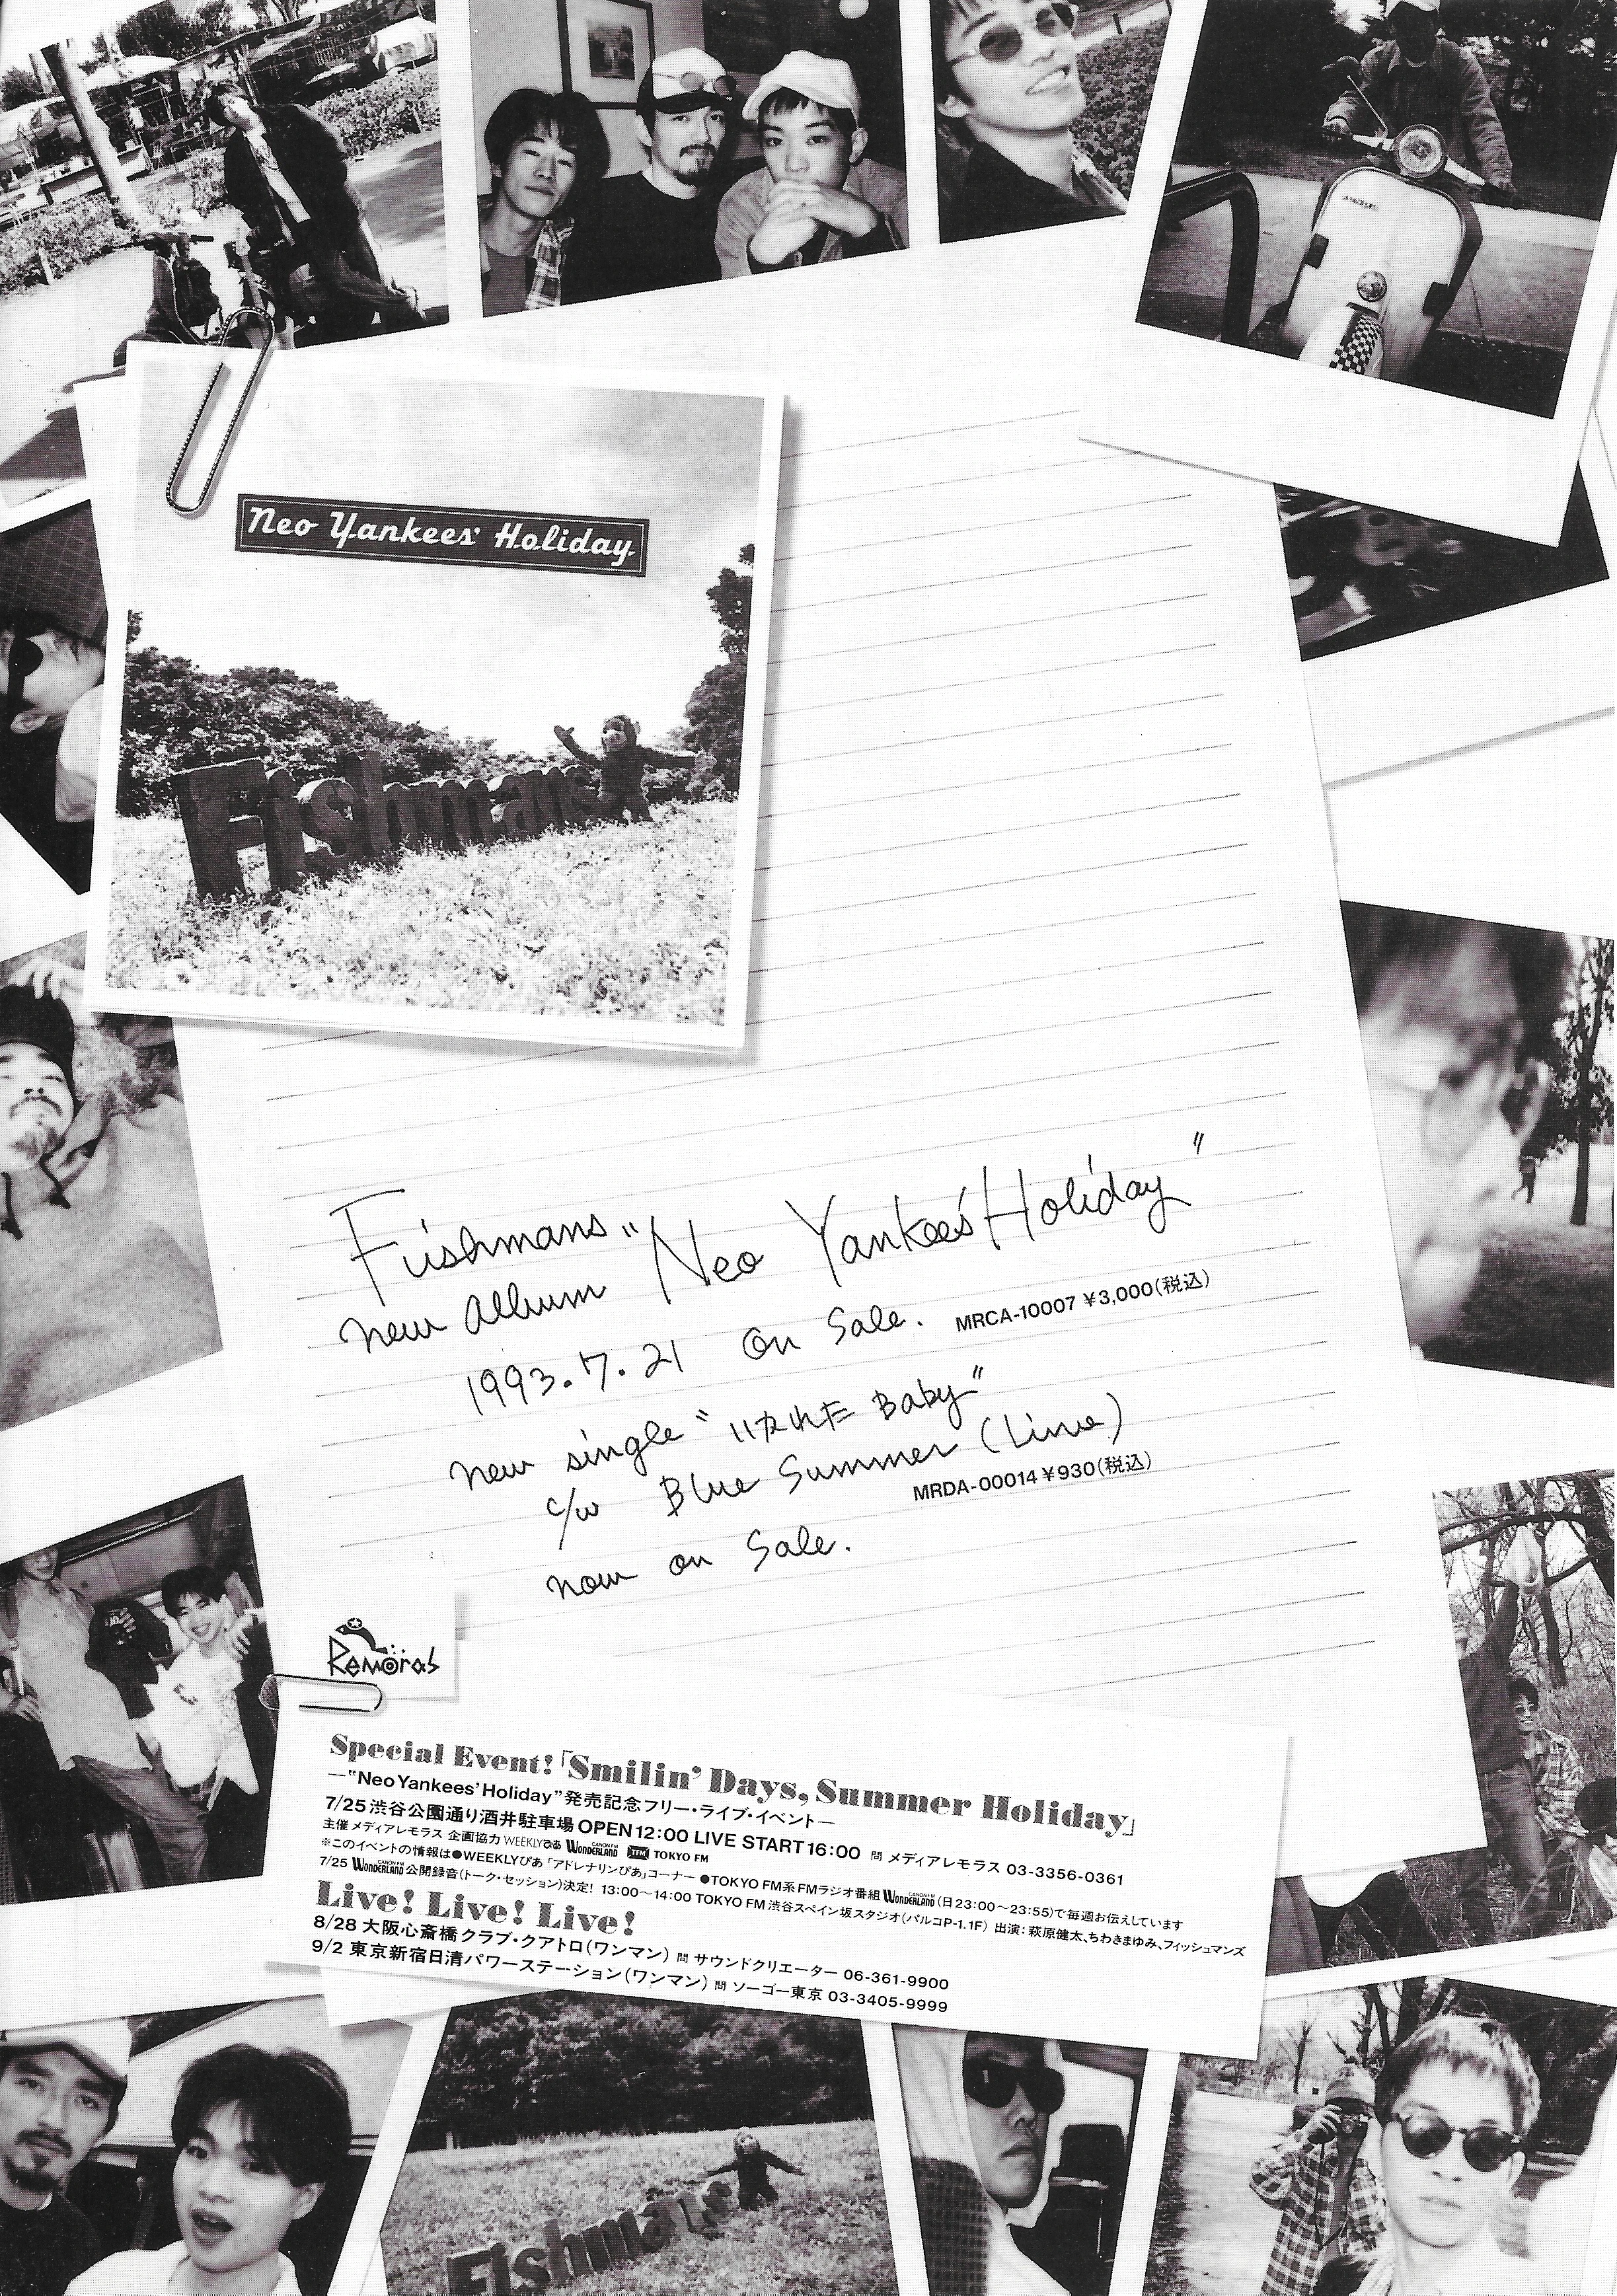 Neo Yankees' Holiday
Fishmans
Fishmans "Neo Yankees' Holiday"
new album
1993.7.21 On Sale. MRCA-10007 ¥3,000(税込)
new single "いかれた Baby"
c/w Blue Summer (Live)
MRDA-00014 ¥930(税込)
now on Sale.
Remoras
Special Event!「Smilin' Days, Summer Holiday」
—"Neo Yankees' Holiday"発売記念フリー・ライブ・イベント—
7/25 渋谷公園通り酒井駐車場 OPEN 12:00 LIVE START 16:00 問 メディアレモラス 03-3356-0361
主催 メディアレモラス 企画協力 WEEKLYぴあ CANON FM WONDERLAND TFM TOKYO FM
※このイベントの情報は●WEEKLYぴあ「アドレナリンぴあ」コーナー ●TOKYO FM系FMラジオ番組 CANON FM WONDERLAND (日23:00〜23:55)で毎週お伝えしています
7/25 CANON FM WONDERLAND 公開録音(トーク・セッション)決定! 13:00〜14:00 TOKYO FM 渋谷スペイン坂スタジオ(パルコP-1.1F) 出演：萩原健太、ちわきまゆみ、フィッシュマンズ
Live! Live! Live!
8/28 大阪心斎橋クラブ・クアトロ(ワンマン) 問 サウンドクリエーター 06-361-9900
9/2 東京新宿日清パワーステーション(ワンマン) 問 ソーゴー東京 03-3405-9999
Fishmans